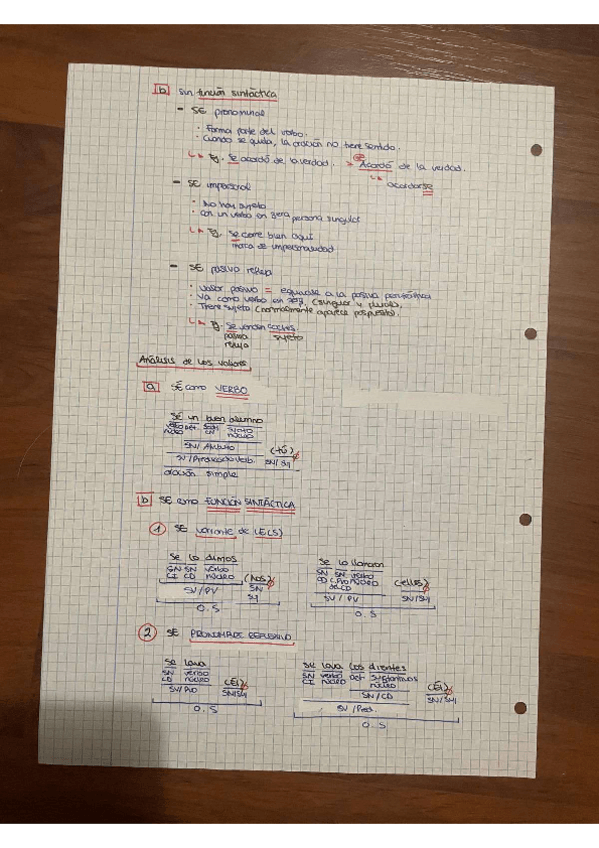 b sin función sintáctica
- SE pronominal
· Forma parte del verbo.
· Cuando se quita, la oración no tiene sentido.
Ej. Se acordó de la verdad. > Acordó de la verdad.
acordarse
- SE impersonal
· No hay sujeto
· Con un verbo en 3era persona singular
Ej. Se come bien aquí
marca de impersonalidad
- SE pasiva refleja
· Valor pasivo = equivale a la pasiva perifrástica
· Va como verbo en 3ª (singular y plural).
· Tiene sujeto (normalmente aparece pospuesto).
Ej. Se venden coches.
pasiva sujeto
refleja
Análisis de los valores
a SÉ como VERBO
Sé un buen alumno
verbo det.
núcleo CN núcleo
SN/Atributo (tú)
SV/Predicado Verb. SN/SUJ
oración simple
b SE como FUNCIÓN SINTÁCTICA
1 SE variante de LE(S)
Se lo dimos Se lo llamaron
SN SN verbo SN SN verbo
CI CD núcleo (Nos) CD núcleo (ellos)
SV/PV SN SV/PV SN/SUJ
SUJ
O.S O.S
2 SE PRONOMBRE REFLEXIVO
Se lava Se lava los dientes
SN verbo SN verbo det sustantivos
CD núcleo (Él) CI núcleo núcleo (Él)
SV/PVO SN/SUJ SN/CD SN/SUJ
O.S SV/Pred.
O.S